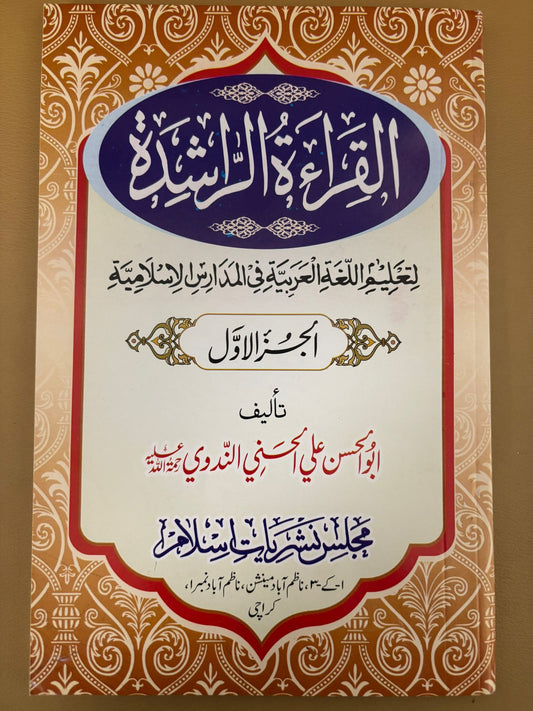 القِرَاءَةُ الرَّاشِدَة
لِتَعْلِيْمِ اللُّغَةِ الْعَرَبِيَّةِ فِي الْمَدَارِسِ الْإِسْلَامِيَّةِ
الجُزءُ الاوَّل
تأليف
ابُوالحسن علي الحَسَني النّدوي رحمة الله عليه
مجلس نشریات اسلام
۱-کے-۳، ناظم آباد مینشن، ناظم آباد نمبر۱،
کراچی